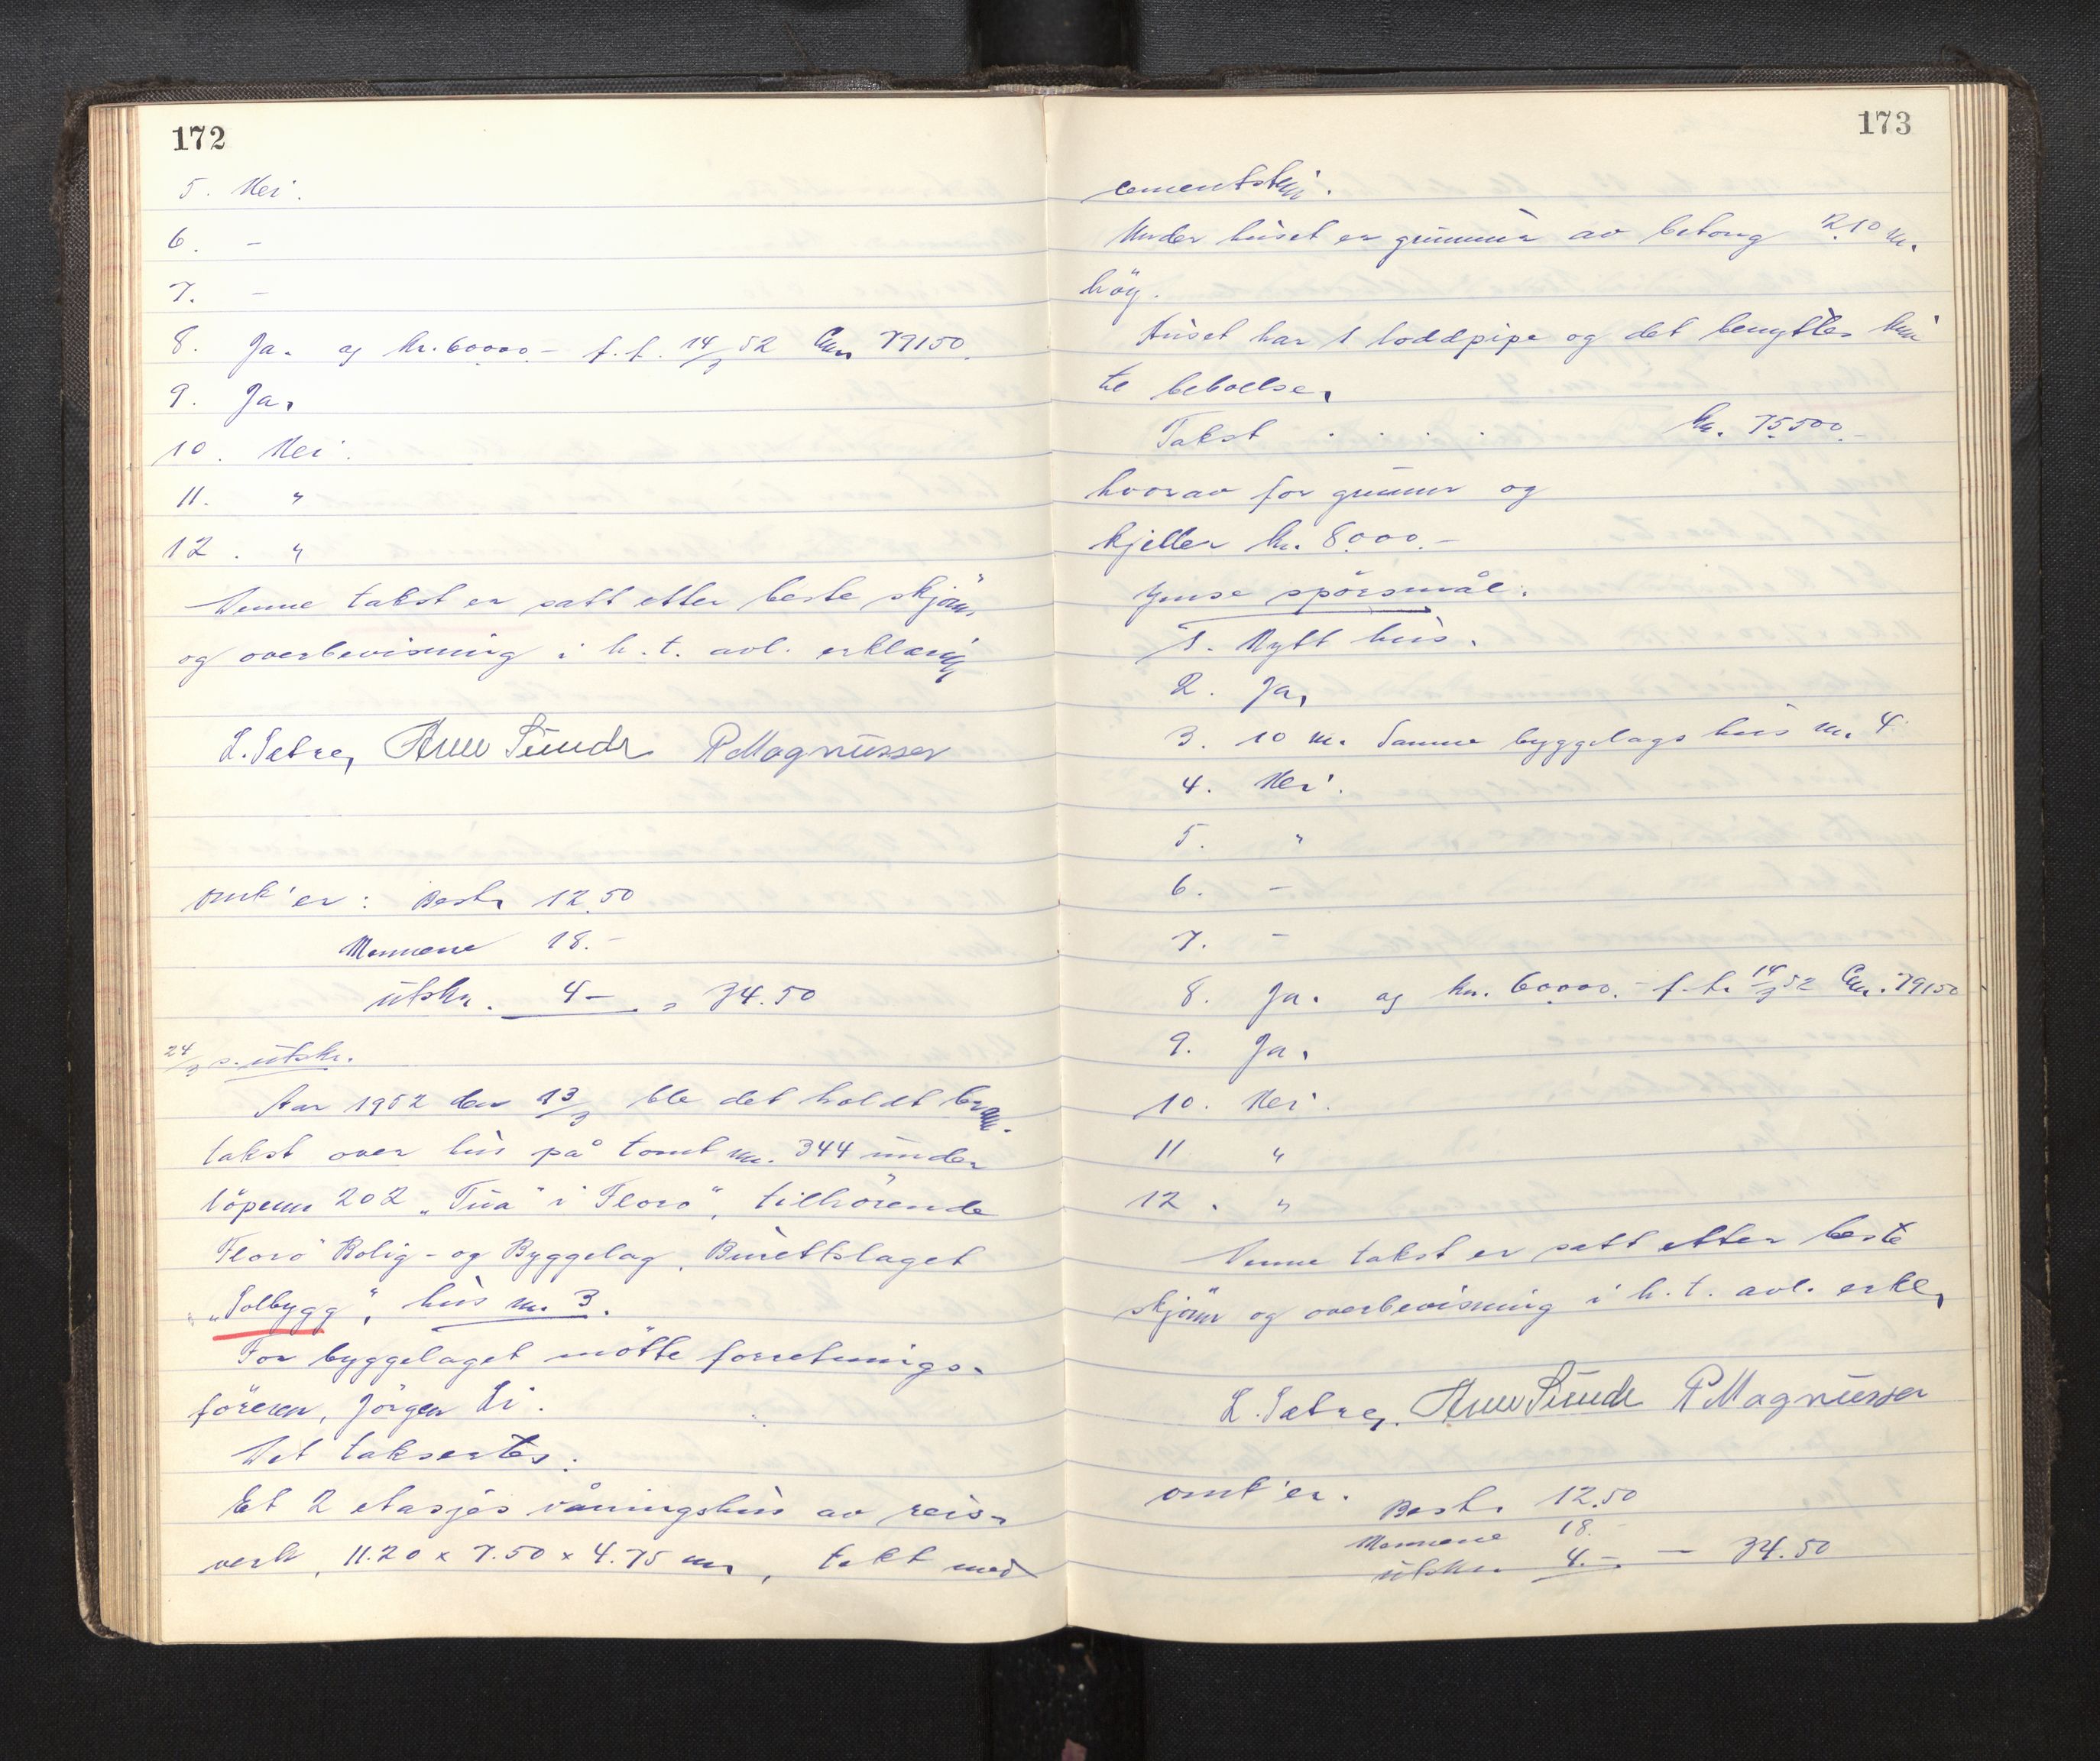 172
5. Nei.
6. –
7. –
8. Ja. og kr. 60000.– f.f. 14/3 52 79150.
9. Ja.
10. Nei.
11. "
12. "
Denne takst er satt etter beste skjönn
og overbevisning i h.t. avl. erklæring
L. Sætre, Arne Sunde R Magnussen
omk'er: Best. 12.50
Mennene 18.–
utskr. 4– = 34.50
24/3 s. utskr.
Aar 1952 den 13/3 ble det holdt brann-
takst over hus på tomt nr. 344 under
löpenr 202 „Tua" i Florö", tilhörende
Florö Bolig- og Byggelag, Burettslaget
„Solbygg", hus nr. 3.
For byggelaget mötte forretnings-
föreren, Jörgen Li.
Det taksertes:
Et 2 etasjes våningshus av reis-
verk, 11.20 x 7.50 x 4.75 m, tekt med
173
cementskin.
Under huset er grunnur av betong 2.10 m.
höy.
Huset har 1 loddpipe og det benyttes kun
til beboelse.
Takst . . . . kr. 75500.–
hvorav for grunnur og
kjeller kr. 8000.–
Ymse spörsmål:
1. Nytt hus.
2. Ja,
3. 10 m. Samme byggelags hus nr. 4
4. Nei.
5. "
6. –
7. –
8. Ja. og kr. 60000.– f.f. 14/3 52 79150
9. Ja.
10. Nei.
11 "
12. "
Denne takst er satt etter beste
skjönn og overbevisning i h.t. avl. erkl.
L. Sætre, Arne Sunde R Magnussen
omk'er. Best. 12.50
Mennene 18.–
utskr. 4.– – 34.50